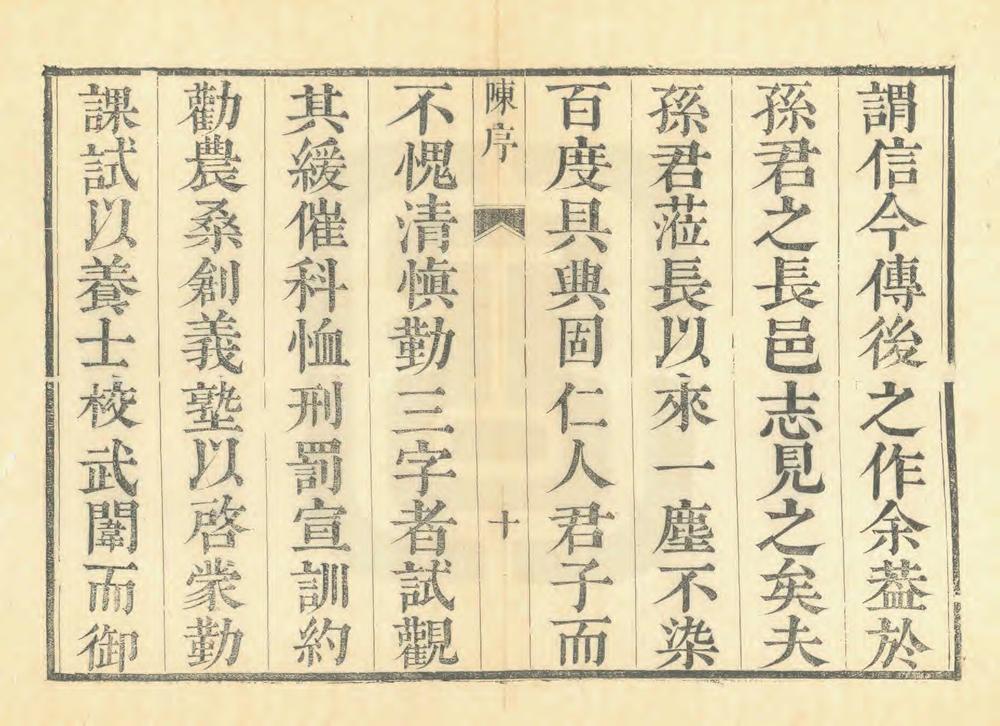 謂信今傳後之作余葢於
孫君之長邑志見之矣夫
孫君蒞長以來一塵不染
百度具興固仁人君子而
陳序
十
不愧清愼勤三字者試觀
其緩催科恤刑罰宣訓約
勸農桑創義塾以啓蒙勤
課試以養士校武闈而御